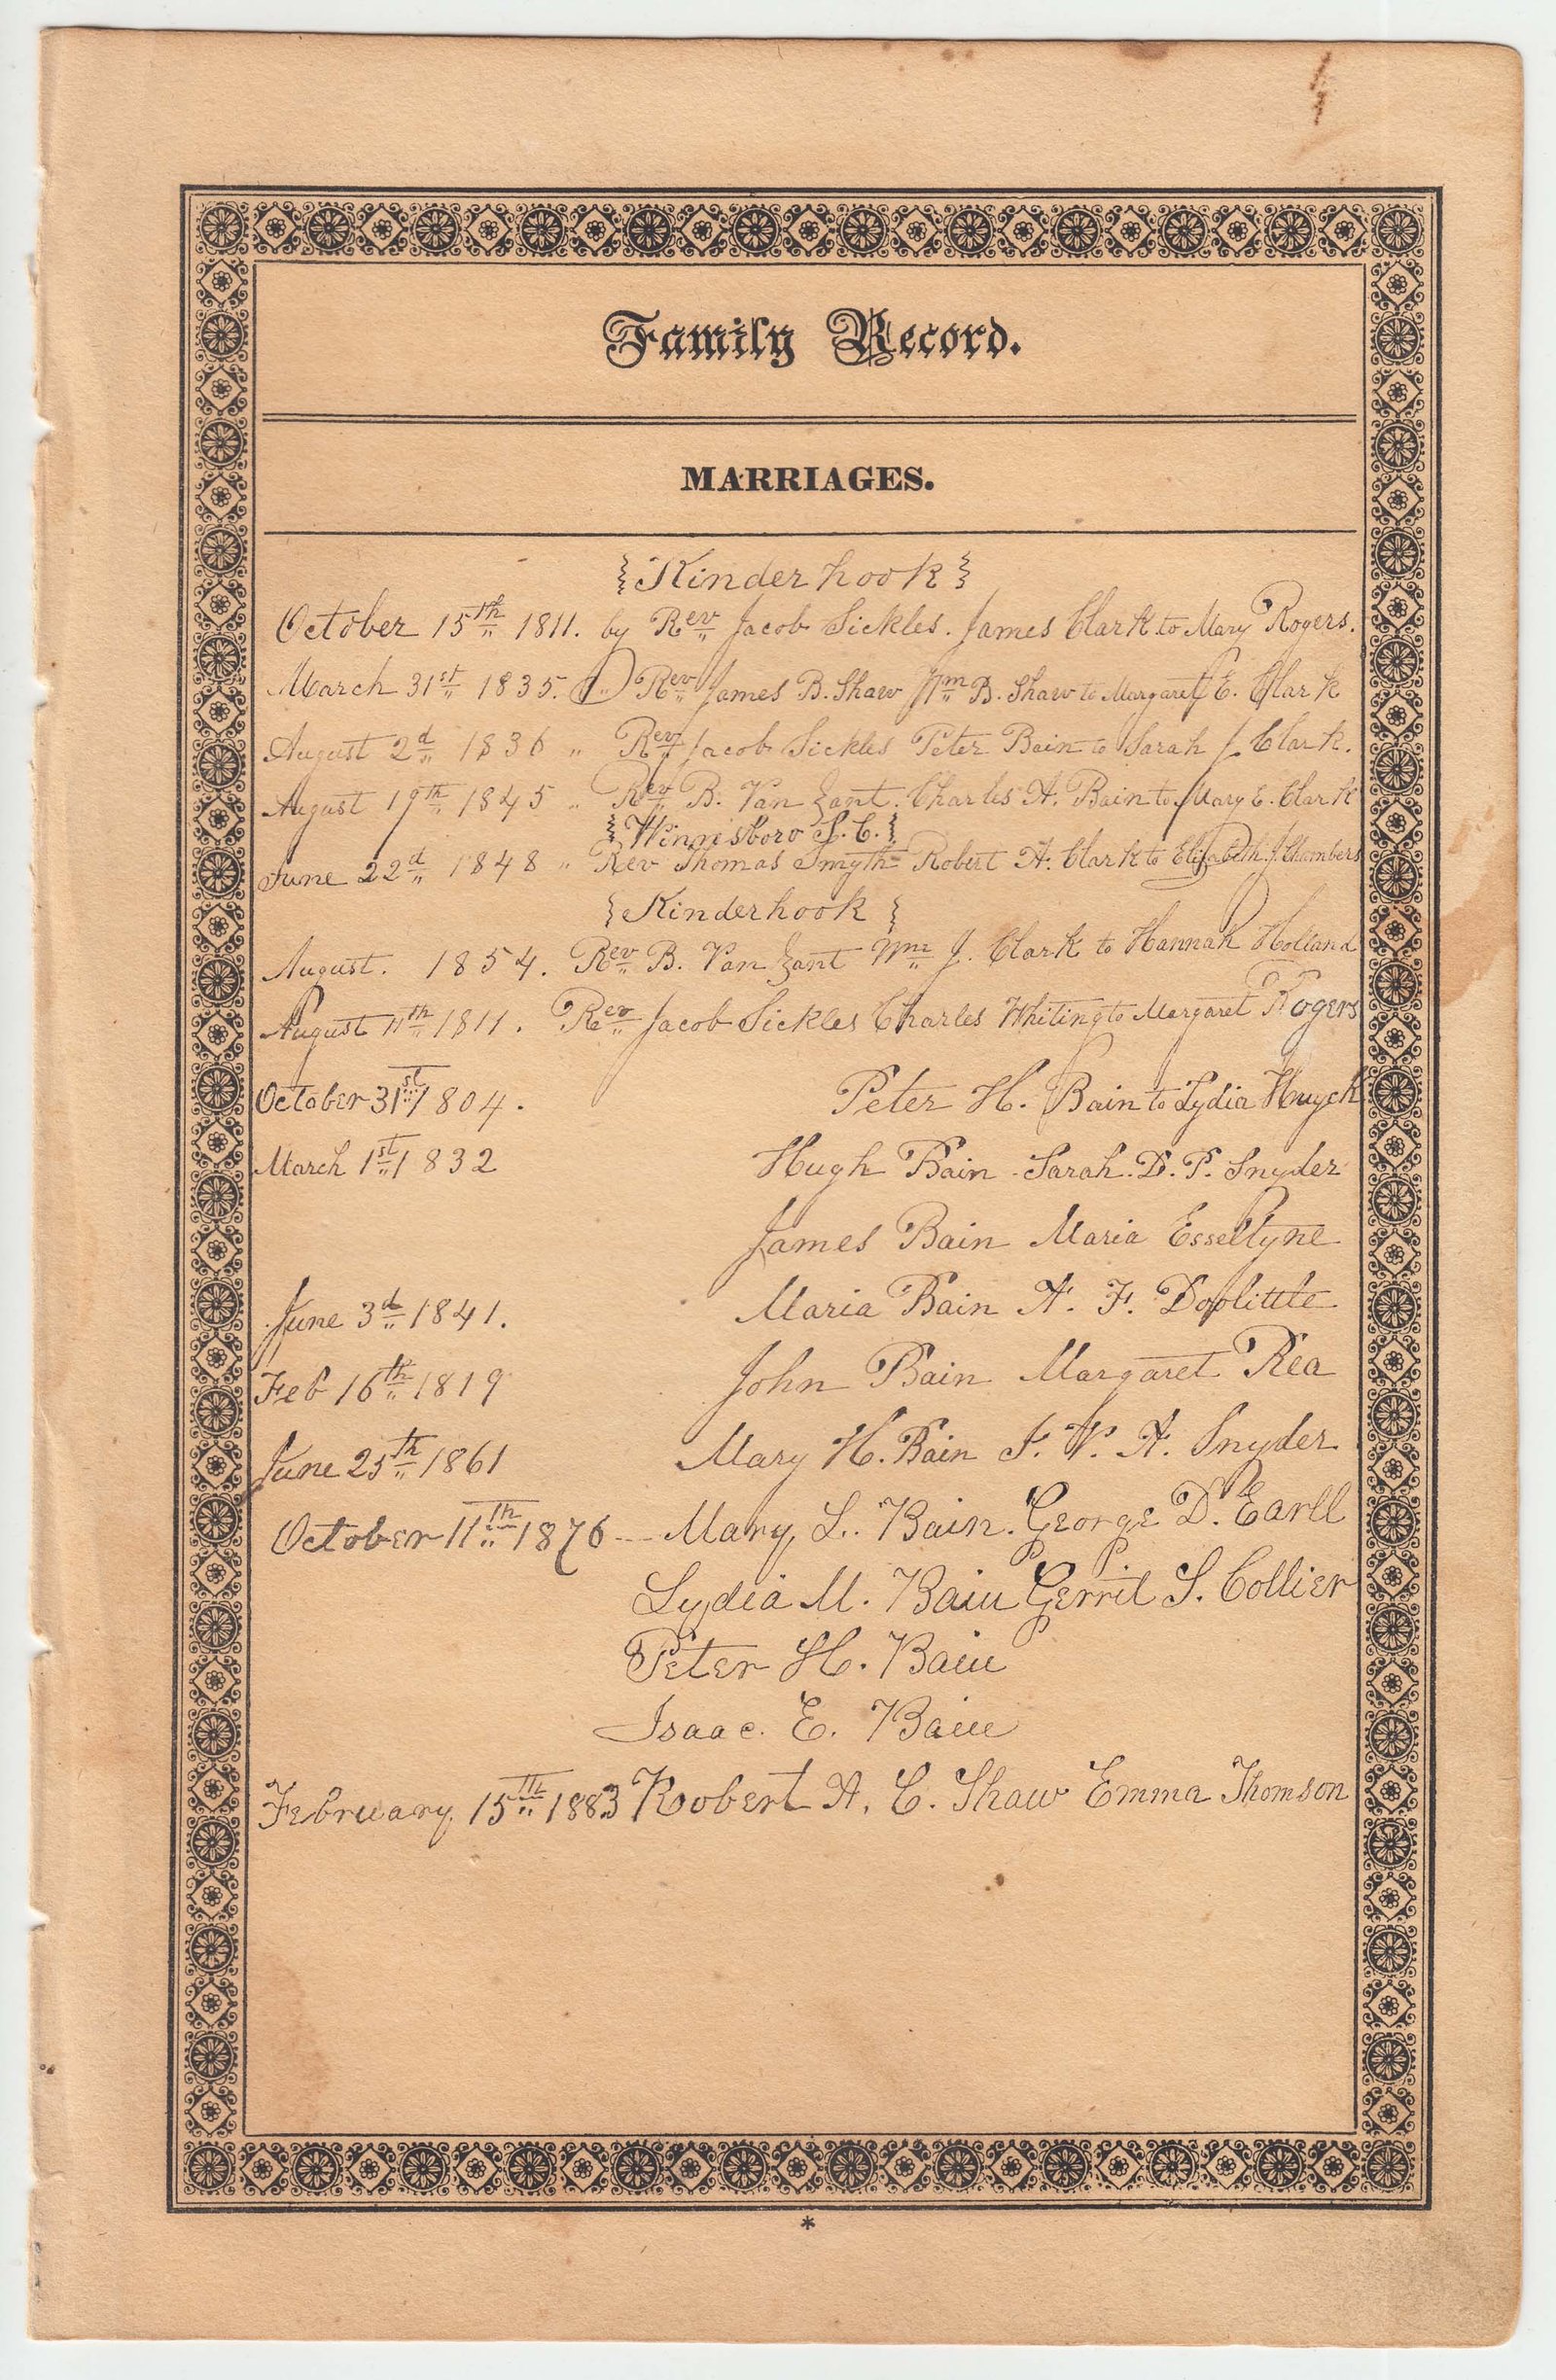 Family Record.
MARRIAGES.
{Kinderhook}
October 15th 1811. by Rev Jacob Sickles. James Clark to Mary Rogers.
March 31st 1835. Rev James B. Shaw Wm B. Shaw to Margaret E. Clark
August 2d 1836 " Rev Jacob Sickles Peter Bain to Sarah J. Clark.
August 19th 1845 " Rev B. Van Zant. Charles A. Bain to Mary E. Clark
{Winnsboro S.C.}
June 22d 1848 " Rev Thomas Smyth Robert A. Clark to Elizabeth J. Chambers
{Kinderhook}
August. 1854. Rev B. Van Zant Wm J. Clark to Hannah Holland
August 11th 1811. Rev Jacob Sickles Charles Whiting to Margaret Rogers
October 31st 1804. Peter H. Bain to Lydia Huyck
March 1st 1832 Hugh Bain Sarah. D. P. Snyder
James Bain Maria Esseltyne
June 3d 1841. Maria Bain A. F. Doolittle
Feb 16th 1819 John Bain Margaret Rea
June 25th 1861 Mary H. Bain J. V. A. Snyder
October 11th 1876 Mary L. Bain. George D. Earll
Lydia M. Bain Gerrit S. Collier
Peter H. Bain
Isaac. E. Bain
February 15th 1883 Robert A. C. Shaw Emma Thomson
*